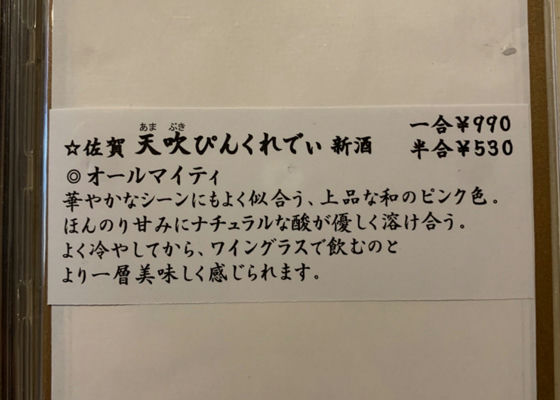 あま ぶき
☆佐賀 天吹ぴんくれでぃ 新酒 一合¥990
半合¥530
◎オールマイティ
華やかなシーンにもよく似合う、上品な和のピンク色。
ほんのり甘みにナチュラルな酸が優しく溶け合う。
よく冷やしてから、ワイングラスで飲むのと
より一層美味しく感じられます。